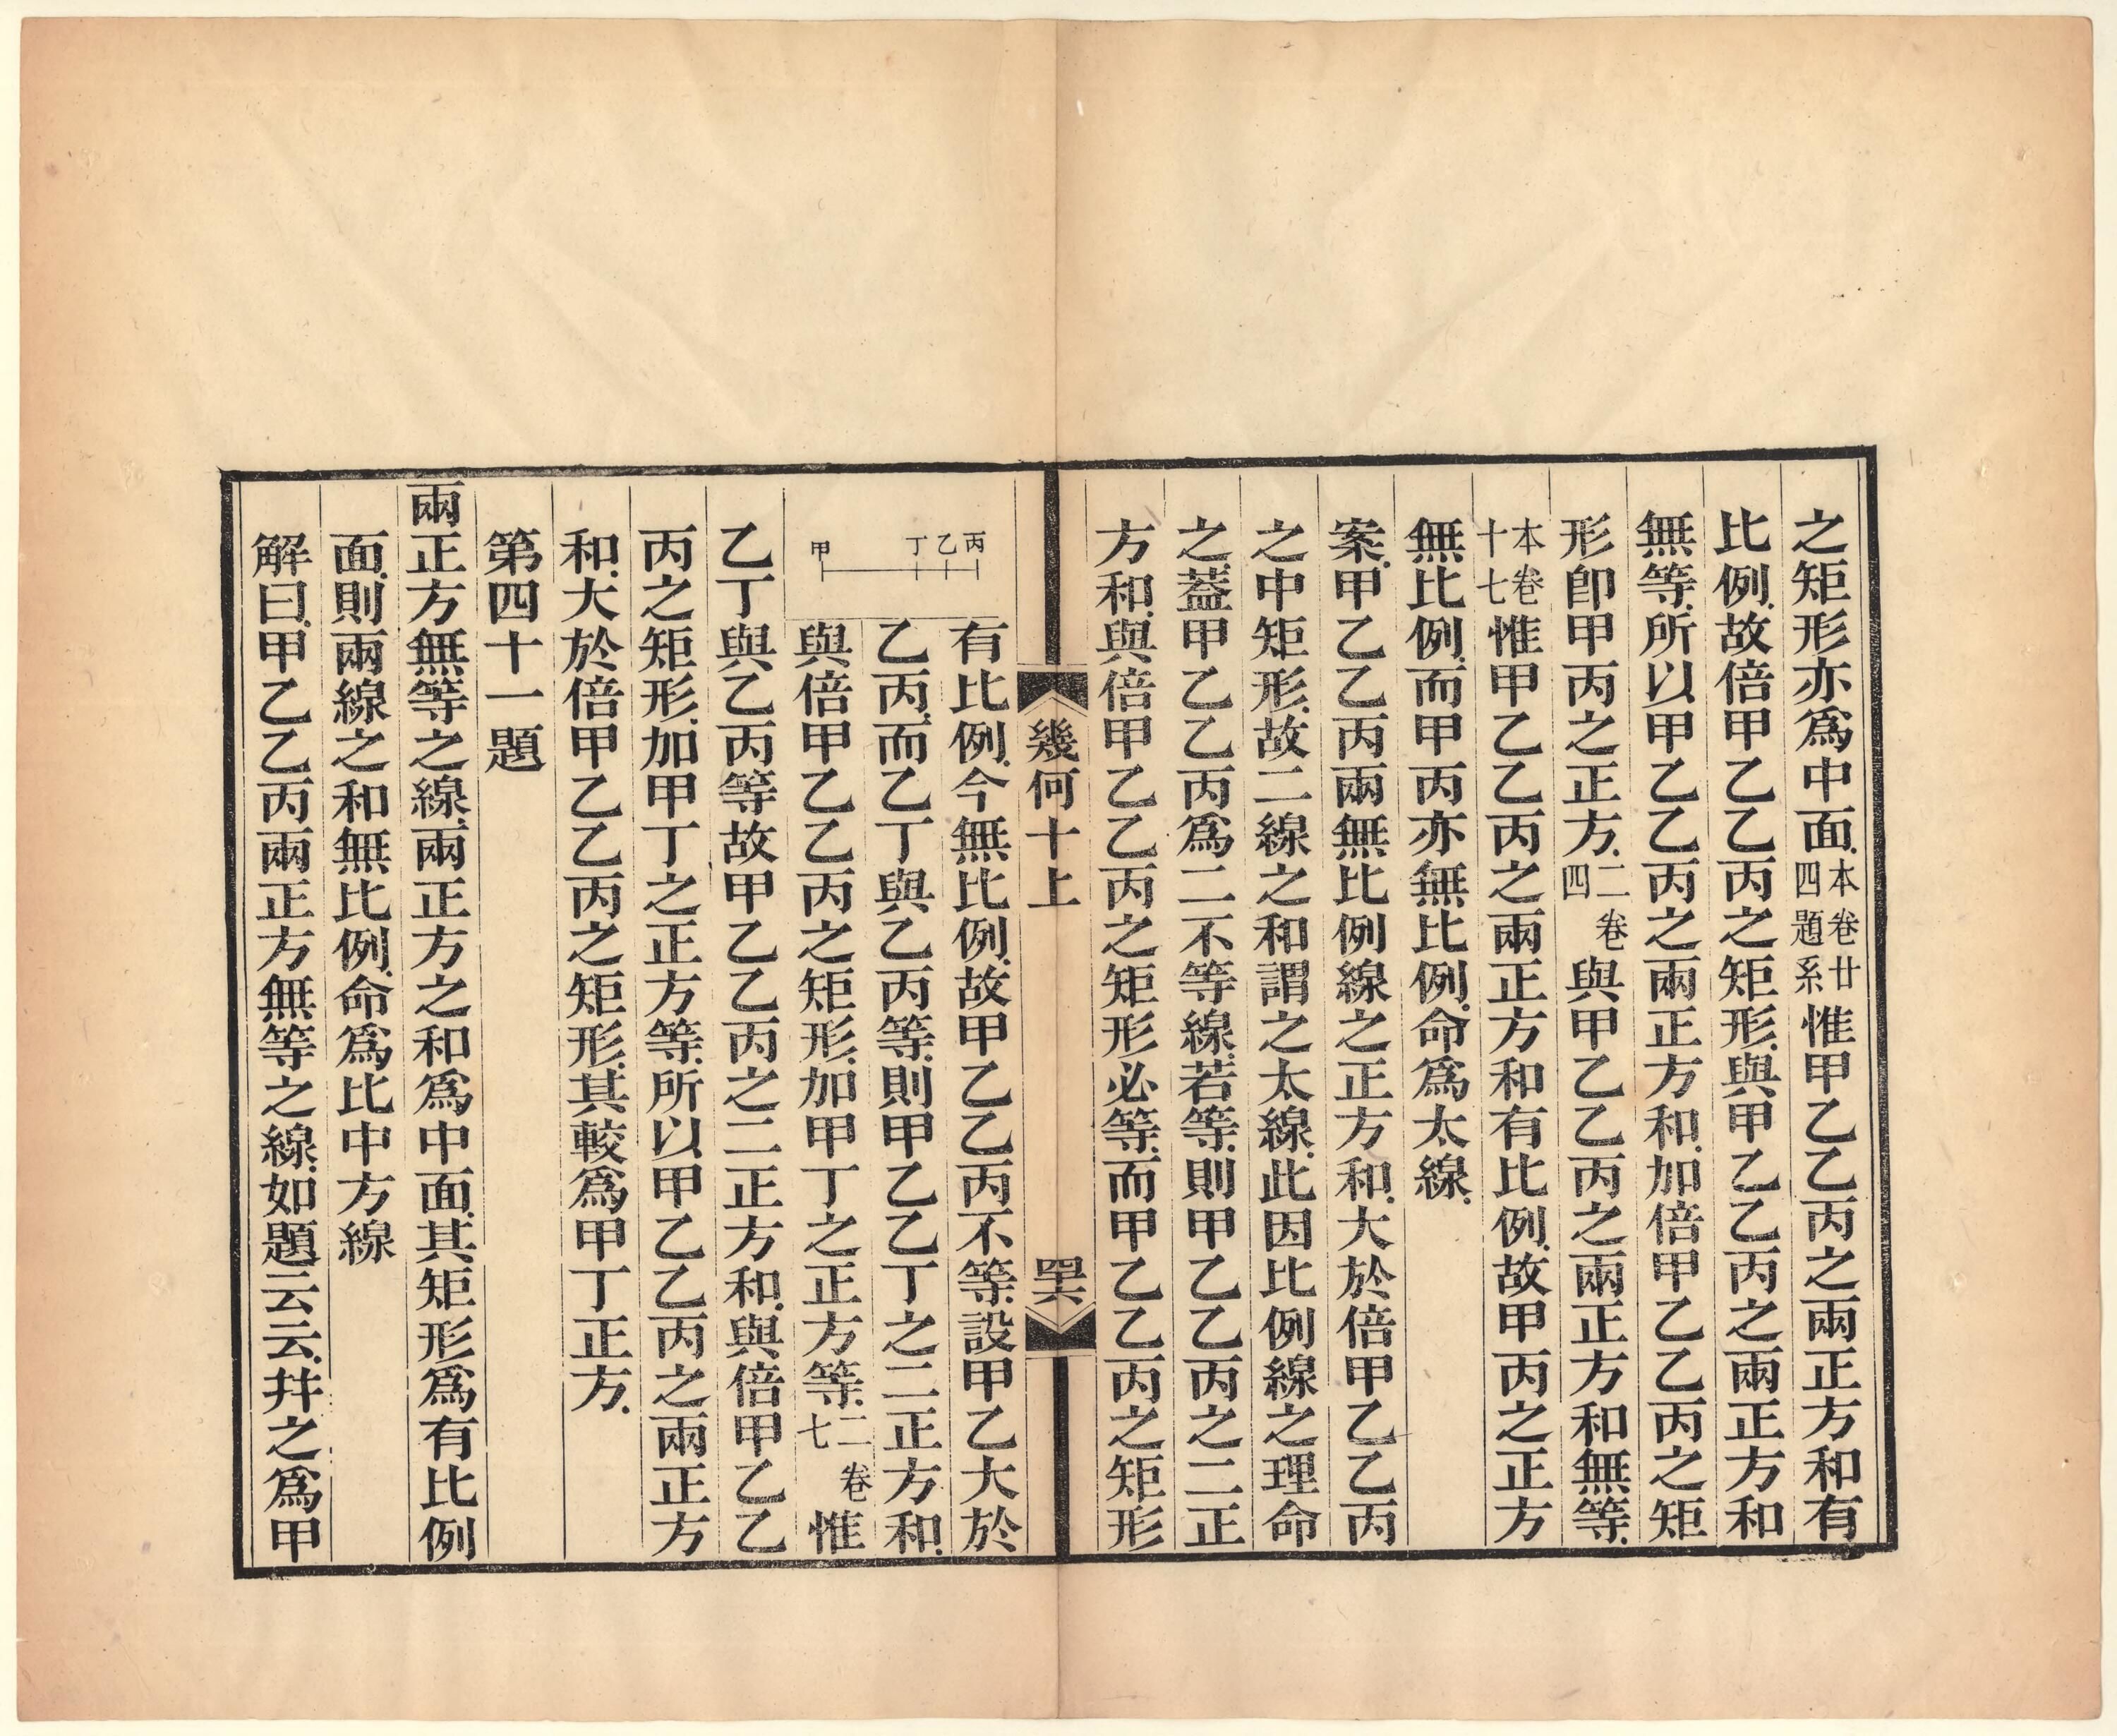 之矩形亦爲中面.本卷廿四題系惟甲乙乙丙之兩正方和有
比例.故倍甲乙乙丙之矩形.與甲乙乙丙之兩正方和
無等.所以甲乙乙丙之兩正方和.加倍甲乙乙丙之矩
形卽甲丙之正方.二卷四與甲乙乙丙之兩正方和無等.
本卷十七惟甲乙乙丙之兩正方和有比例.故甲丙之正方
無比例.而甲丙亦無比例.命爲太線.
案.甲乙乙丙兩無比例線之正方和.大於倍甲乙乙丙
之中矩形.故二線之和謂之太線.此因比例線之理命
之.葢甲乙乙丙爲二不等線.若等.則甲乙乙丙之二正
方和.與倍甲乙乙丙之矩形必等.而甲乙乙丙之矩形
幾何十上
四六
有比例.今無比例.故甲乙乙丙不等.設甲乙大於
乙丙.而乙丁與乙丙等.則甲乙乙丁之二正方和.
與倍甲乙乙丙之矩形.加甲丁之正方等.二卷七惟
丙乙丁甲
乙丁與乙丙等故甲乙乙丙之二正方和.與倍甲乙乙
丙之矩形.加甲丁之正方等.所以甲乙乙丙之兩正方
和.大於倍甲乙乙丙之矩形.其較爲甲丁正方.
第四十一題
兩正方無等之線.兩正方之和爲中面.其矩形爲有比例
面.則兩線之和無比例.命爲比中方線
解曰.甲乙乙丙兩正方無等之線.如題云云.幷之爲甲